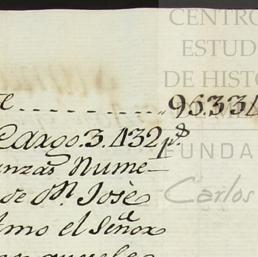 CENTRO
ESTUD
DE HISTO
FUNDA
Carlos
e........ 96.334
Cargo. 3.432 p.s
anzas Nume-
de Dn. Josè
tmo el Señor